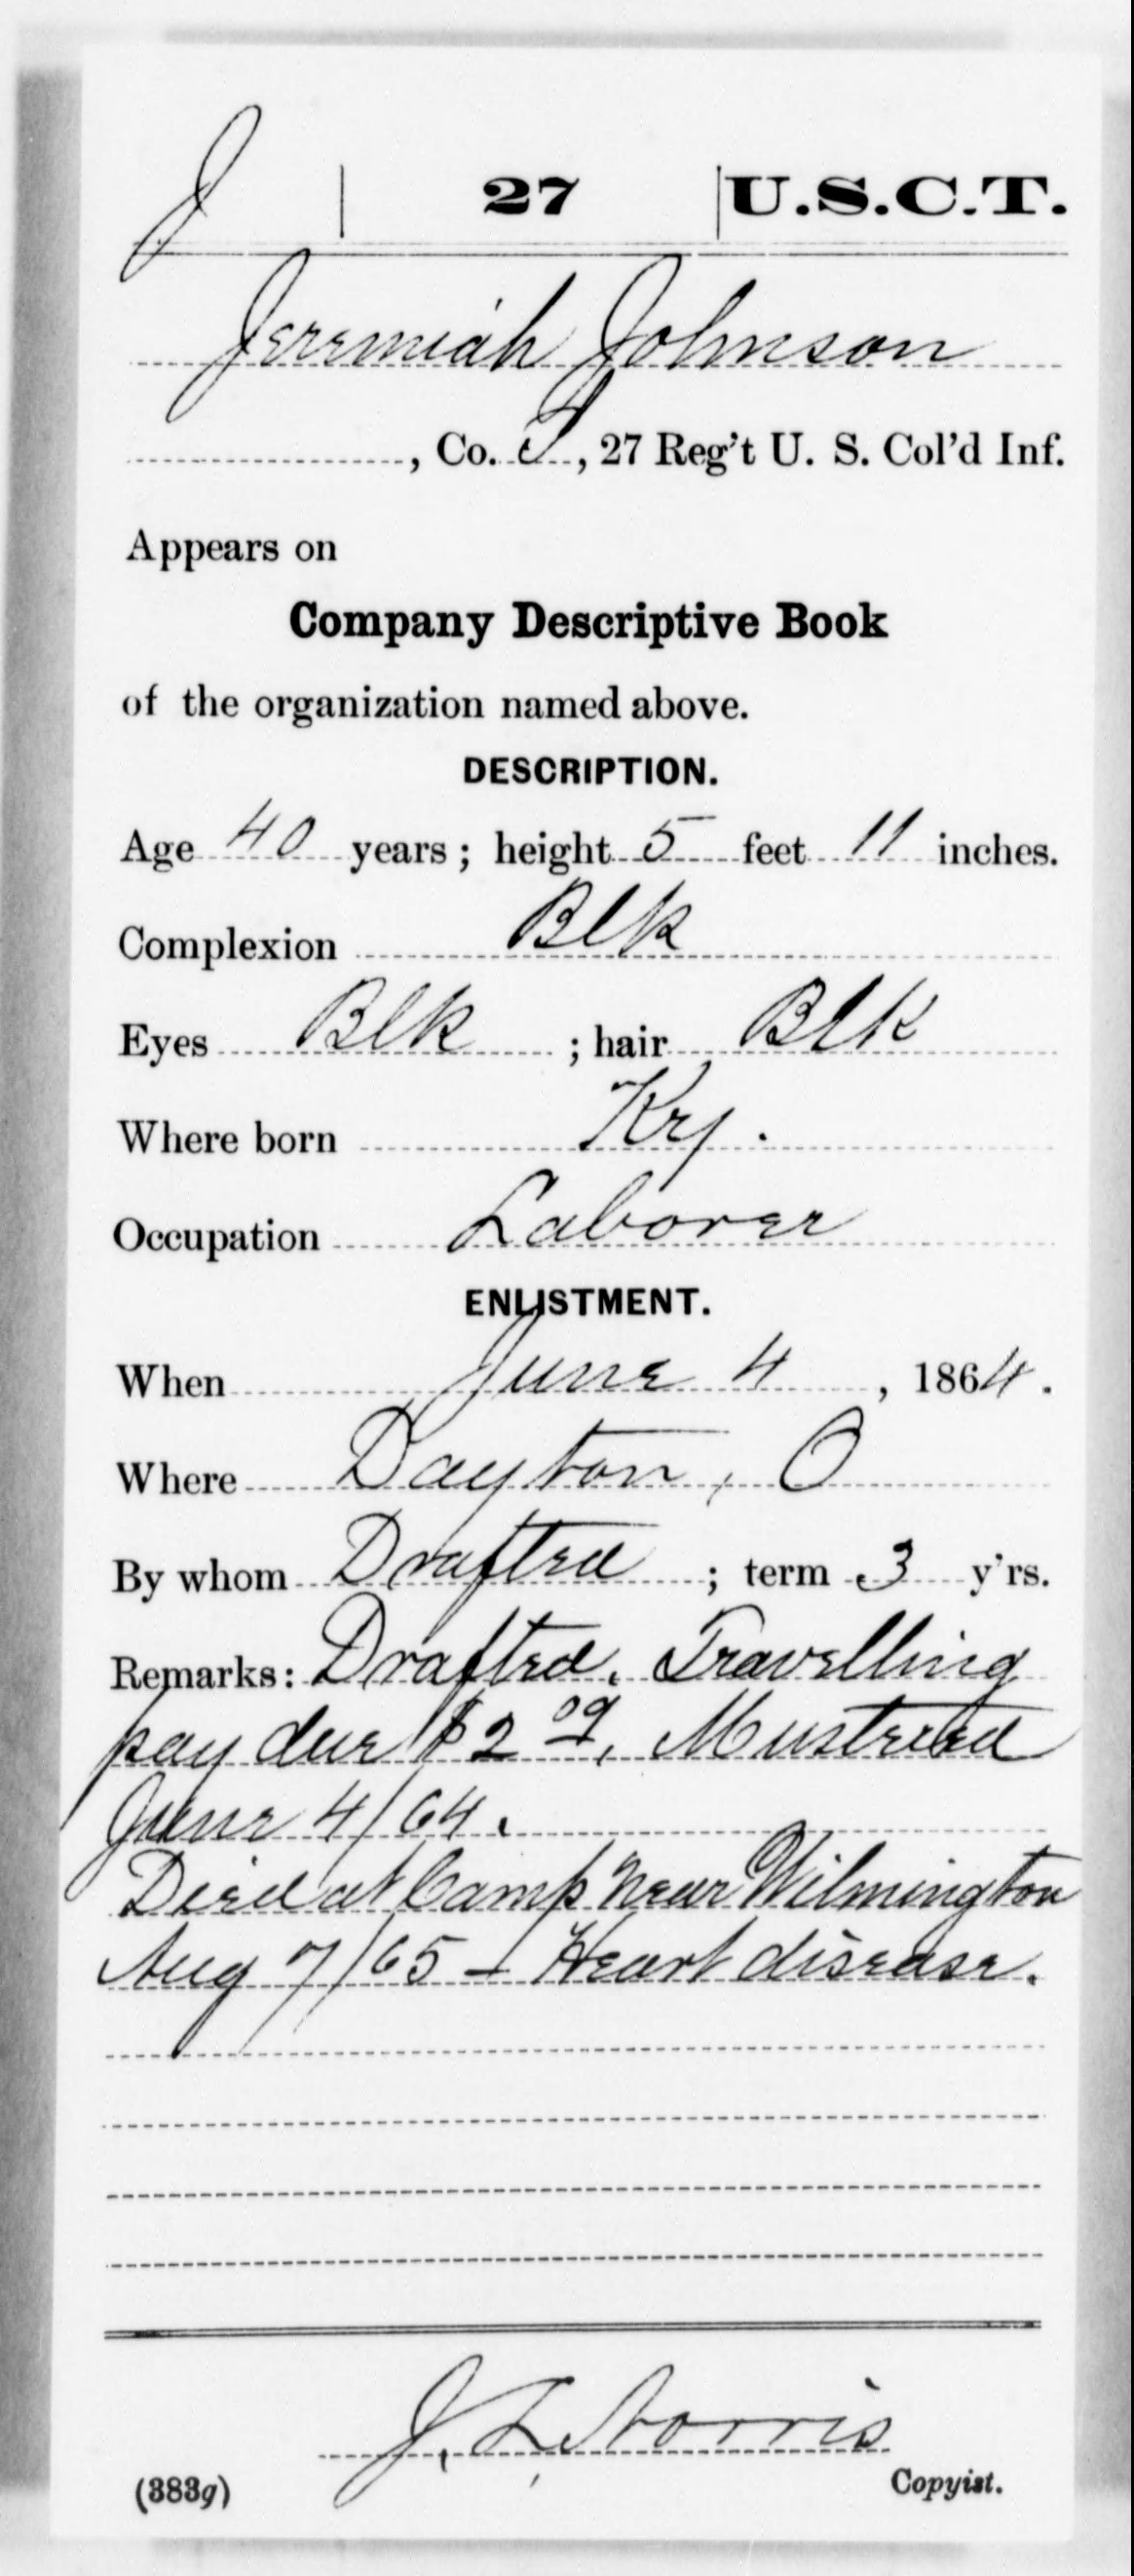 J | 27 | U.S.C.T.
Jeremiah Johnson
, Co. I, 27 Reg't U. S. Col'd Inf.
Appears on
Company Descriptive Book
of the organization named above.
DESCRIPTION.
Age 40 years; height 5 feet 11 inches.
Complexion Blk
Eyes Blk ; hair Blk
Where born Ky.
Occupation Laborer
ENLISTMENT.
When June 4, 1864.
Where Dayton, O
By whom Drafted ; term 3 y'rs.
Remarks: Drafted. Travelling
pay due $2 09, Mustered
June 4/64.
Died at Camp near Wilmington
Aug 7/65 - Heart disease.
J. L. Norris
(383g) Copyist.